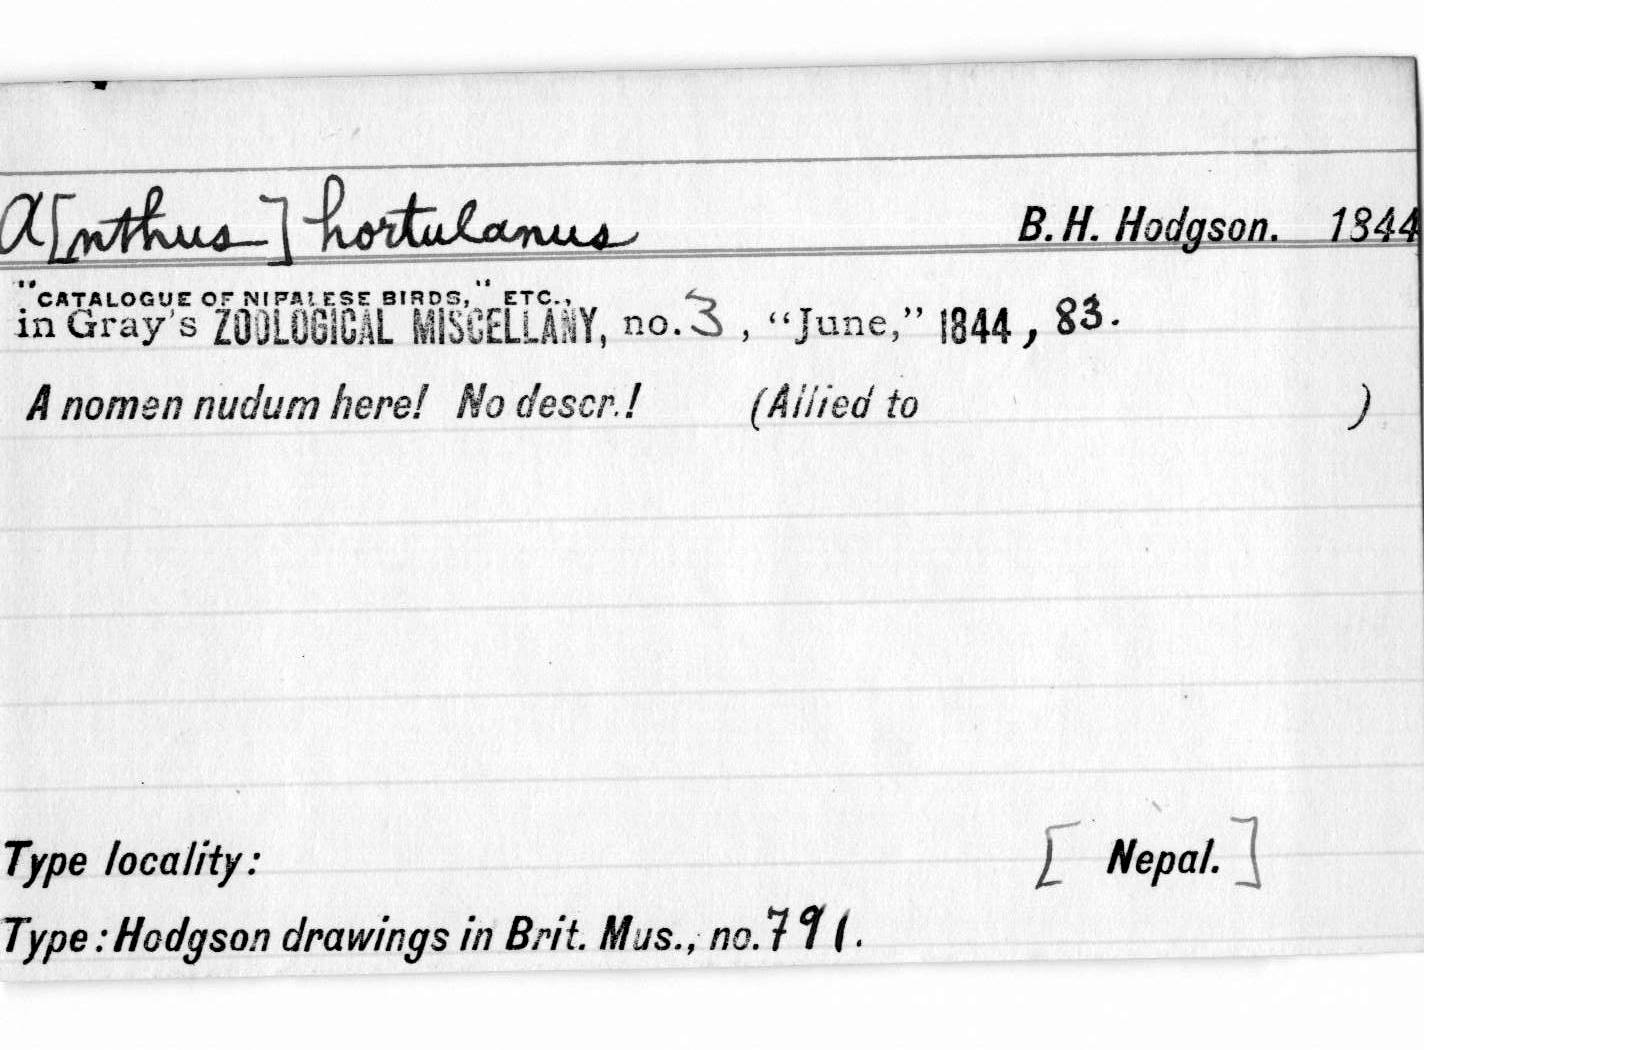 A[nthus] hortulanus B. H. Hodgson. 1844
"CATALOGUE OF NIPALESE BIRDS," ETC.,
in Gray's ZOOLOGICAL MISCELLANY, no. 3, "June," 1844, 83.
A nomen nudum here! No descr.! (Allied to )
Type locality: [ Nepal. ]
Type: Hodgson drawings in Brit. Mus., no. 791.